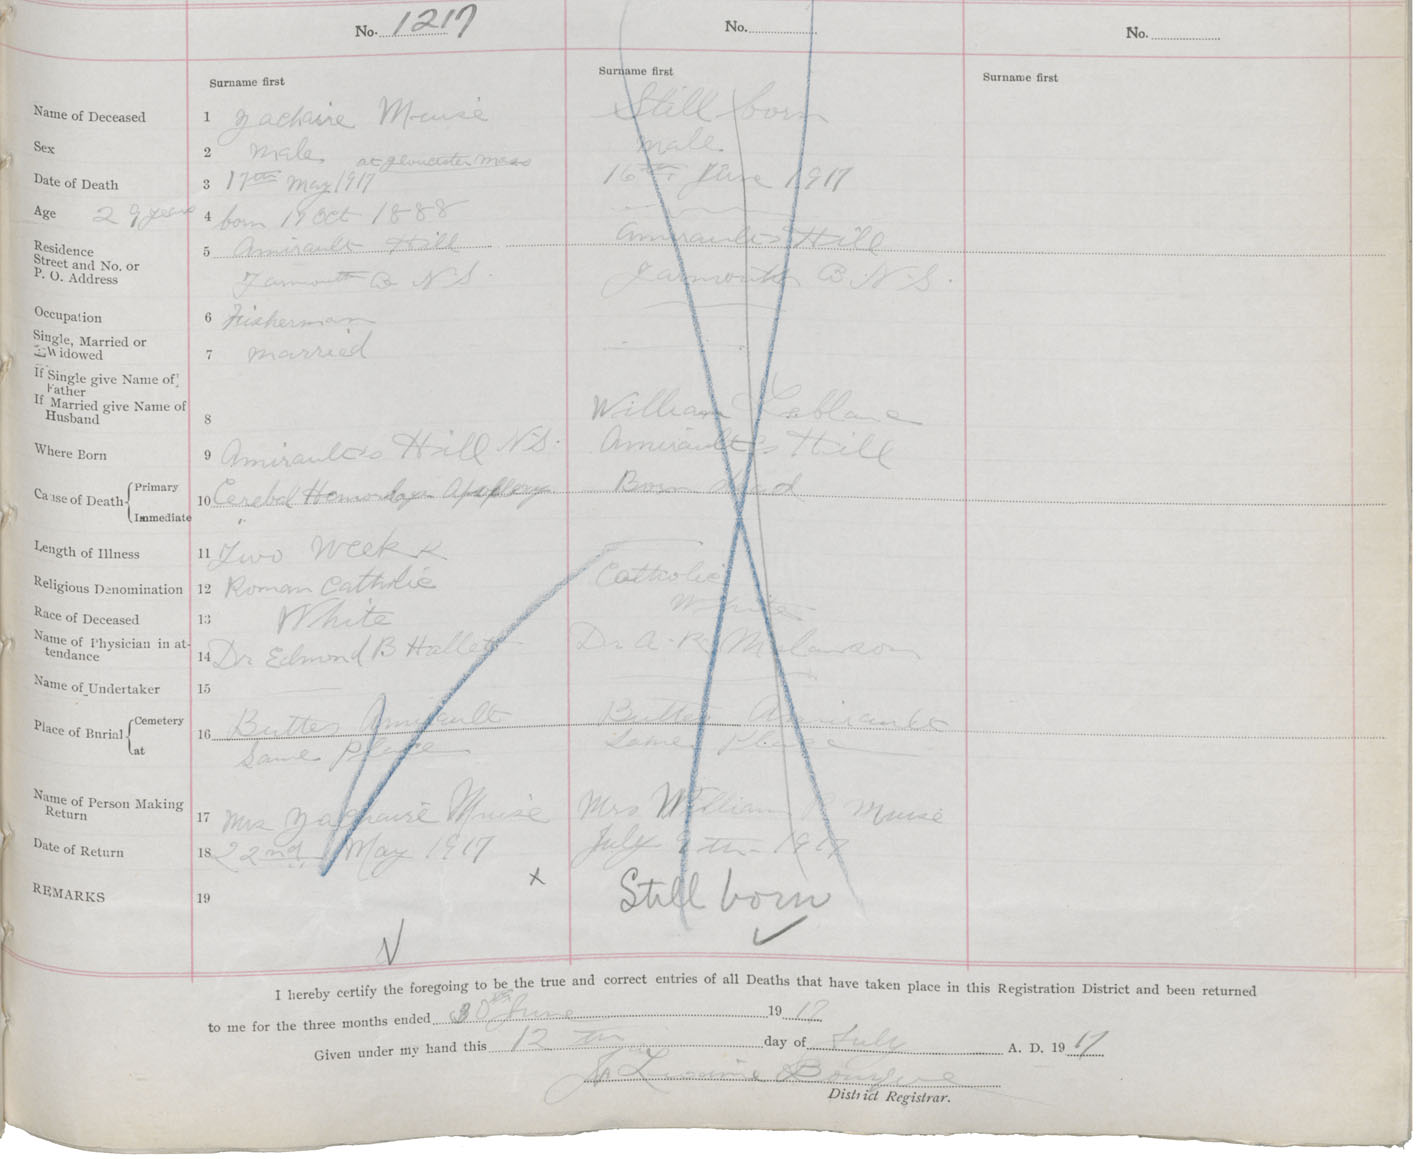 No. 1217
No.
No.
Surname first
Surname first
Surname first
Name of Deceased 1 Zachaire Muise Still born
Sex 2 male at gloucester mass male
Date of Death 3 17th May 1917 16th June 1917
Age 29 years 4 born 19 Oct 1888
Residence Street and No. or P. O. Address 5 Amirault Hill Amirault's Hill
Yarmouth B N S. Yarmouth B. N. S.
Occupation 6 Fisherman
Single, Married or Widowed 7 married
If Single give Name of Father
If Married give Name of Husband 8 William Leblanc
Where Born 9 Amirault's Hill N.S. Amirault's Hill
Cause of Death Primary Immediate 10 Cerebal Born dead
Length of Illness 11 Two Week
Religious Denomination 12 Roman Catholic Catholic
Race of Deceased 13 White White
Name of Physician in attendance 14 Dr Edmond B Hallett Dr A. R.
Name of Undertaker 15
Place of Burial Cemetery at 16 Buttes Amirault Buttes Amirault
Same Place Same Place
Name of Person Making Return 17 Mrs Zachairé Muise Mrs William R Muise
Date of Return 18 22nd May 1917 July 9th 1917
REMARKS 19 x Still born
I hereby certify the foregoing to be the true and correct entries of all Deaths that have taken place in this Registration District and been returned
to me for the three months ended 30th June 1917
Given under my hand this 12 th day of July A. D. 1917
District Registrar.